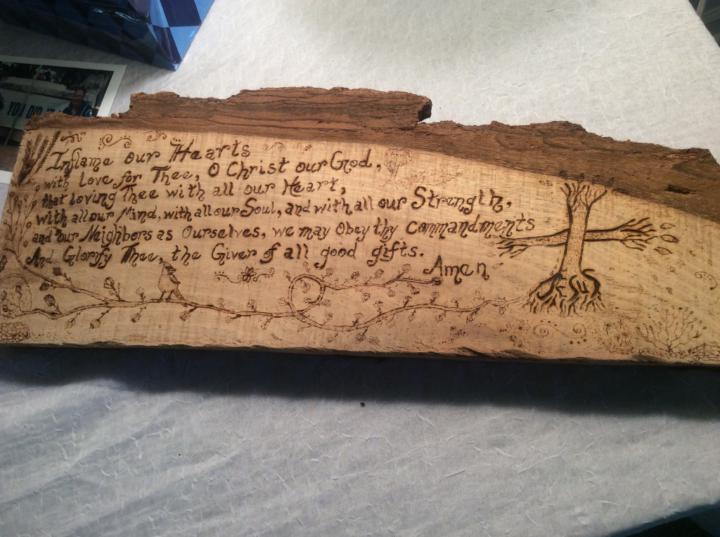 Inflame our Hearts
with love for Thee, O Christ our God,
that loving Thee with all our Heart,
with all our Mind, with all our Soul, and with all our Strength,
and our Neighbors as Ourselves, we may Obey thy commandments
And Glorify Thee, the Giver of all good gifts.
Amen